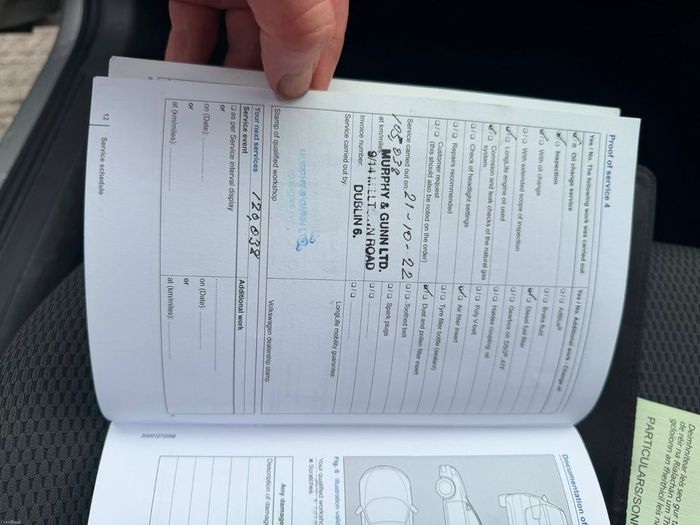 Proof of service 4
Yes / No. The following work was carried out:
Oil change service
Inspection
With oil change
With extended scope of inspection
LongLife engine oil used
Corrosion and leak checks of the natural gas
system
Check of headlight settings
Repairs recommended
Customer request
(this should also be noted on the order)
Service carried out on: 21-10-22
105038
at km/miles:
MURPHY & GUNN LTD.
ROAD
DUBLIN 6.
Invoice number:
Service carried out by:
Stamp of qualified workshop
Yes / No. Additional work
AdBlue®
Brake fluid
Diesel fuel filter
Gearbox oil DSG® ATF
Haldex coupling oil
Poly V-belt
Air filter insert
Tyre filler bottle (sealant)
Dust and pollen filter insert
Toothed belt
Spark plugs
LongLife mobility guarantee:
Volkswagen dealership stamp
Your next services 120,038
Service event
as per Service interval display
or
on (Date):
or
at (km/miles):
Additional work
on (Date):
or
at (km/miles):
12 Service schedule
Documentation of
Fig. 6 Illustration
Your qualified
× Scratches
Any damage
Description of damag
Deimhnítear leis seo gur
de réir na Rialachán um
gcloíonn an fheithicil leis
PARTICULARS/SON